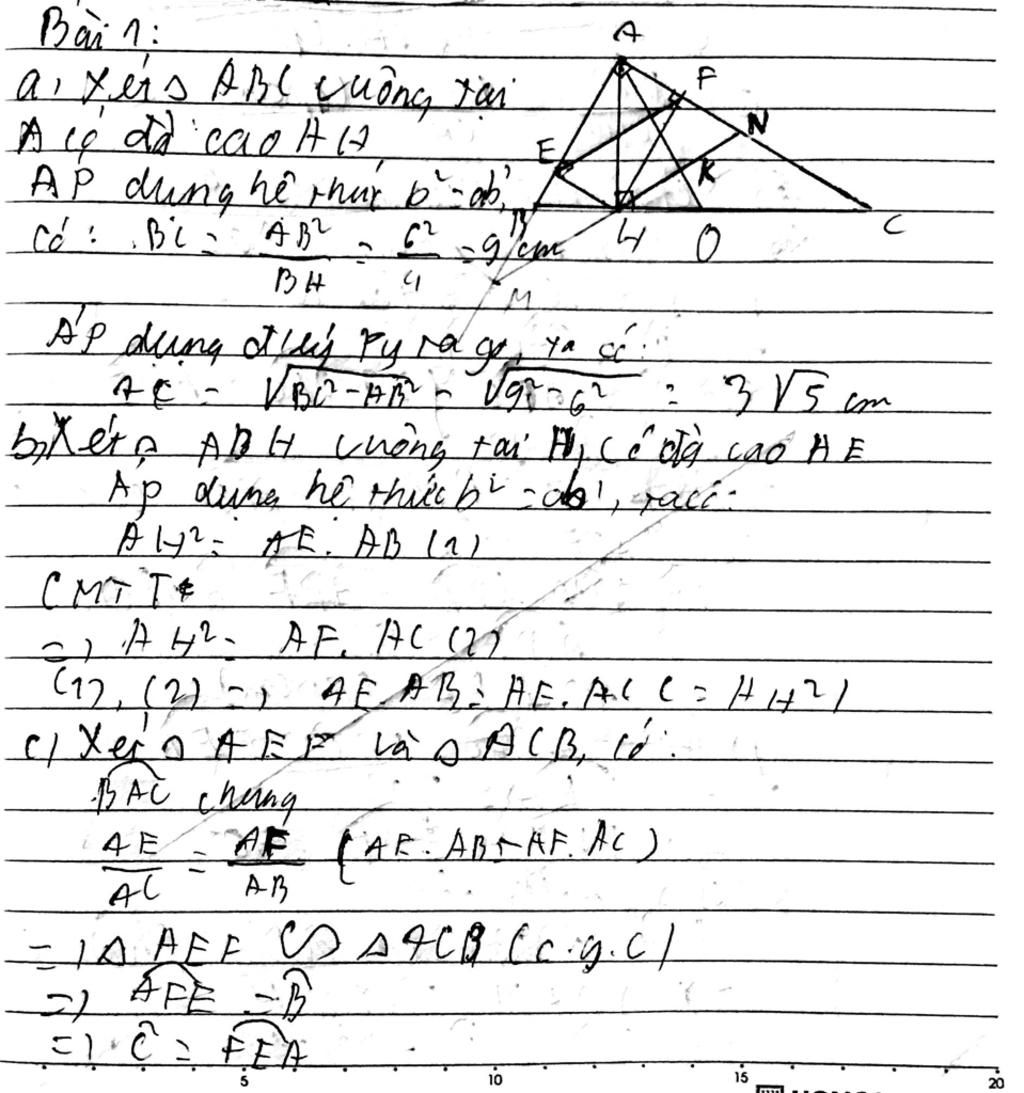 Bài 1:
a, Xét △ ABC vuông tại
A có đg cao AH
Áp dụng hệ thức b² = ab',
có: BC = AB²/BH = 6²/4 = 9 cm
Áp dụng đ lý Py ta go, ta có:
AC = √BC² - AB² = √9² - 6² = 3√5 cm
b, Xét △ ABH vuông tại H, có đg cao HE
Áp dụng hệ thức b² = ab', ta có:
AH² = AE. AB (1)
CMTT
=) AH² = AF. AC (2)
(1), (2) =) AE. AB = AF. AC (= AH²)
c) Xét △ AEF và △ ACB, có:
BAC chung
AE/AC = AF/AB (AE. AB = AF. AC)
=) △ AEF ∽ △ ACB (c.g.c)
=) AFE = B
=) C = FEA
A
F
N
E
K
B
H
O
C
M
5 10 15 20